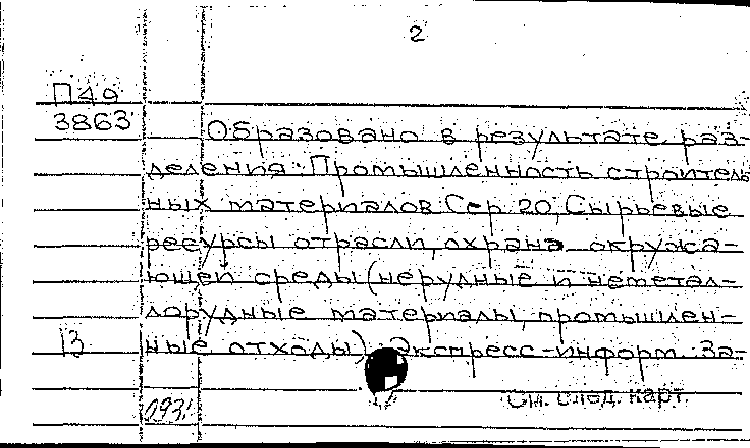 2
П49
3863
Образовано в результате раз-
деления: Промышленность строитель
ных материалов. Сер. 20, Сырьевые
ресурсы отрасли, охрана окружа-
ющей среды (нерудные и неметал-
лорудные материалы, промышлен-
В ные отходы): Экспресс-информ. За-
См. след. карт.
093